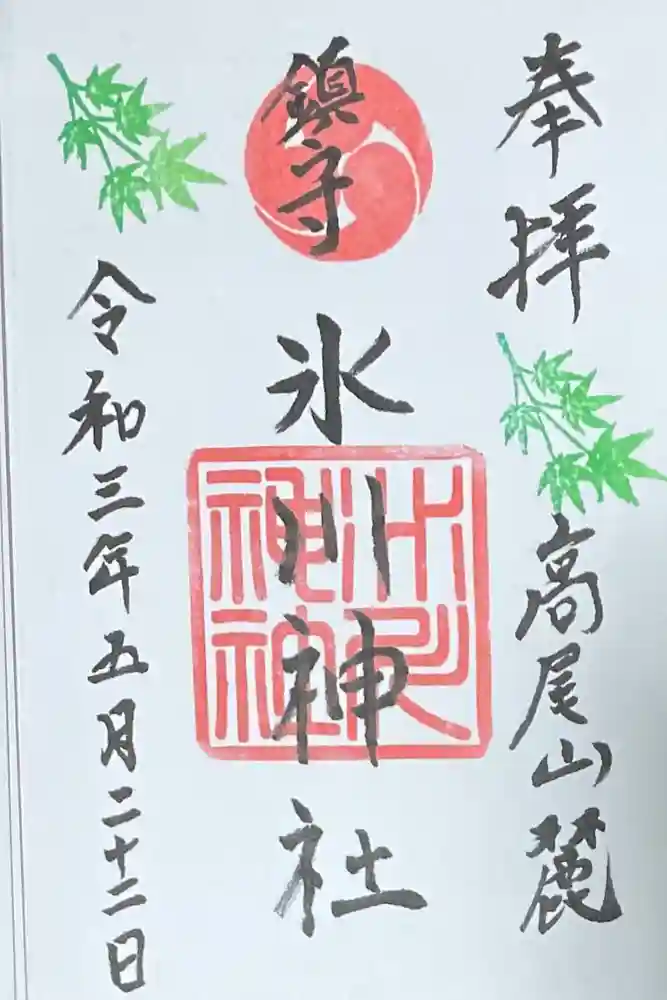 奉拝
高尾山麓
鎮守
氷川神社
氷川
神社
令和三年五月二十二日